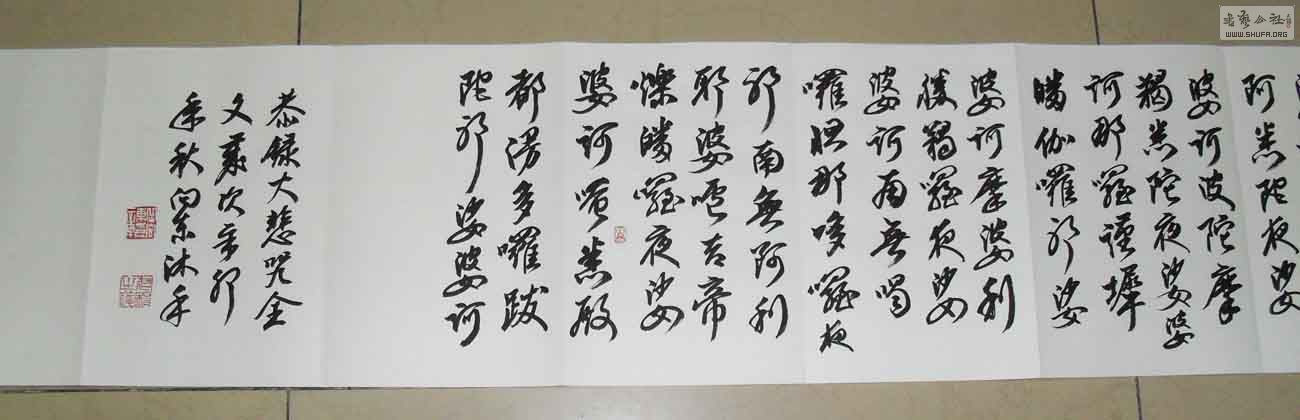 阿悉陀夜娑
婆訶波陀摩
羯悉陀夜娑婆
訶那囉謹墀
皤伽囉耶娑
婆訶摩婆利
勝羯囉夜娑
婆訶南無喝
囉怛那哆囉夜
耶南無阿利
耶婆嚧吉帝
爍皤囉夜娑
婆訶唵悉殿
都漫多囉跋
陀耶娑婆訶
恭錄大悲咒全
文歲次辛卯
年秋向東沐手
书艺公社
WWW.SHUFA.ORG